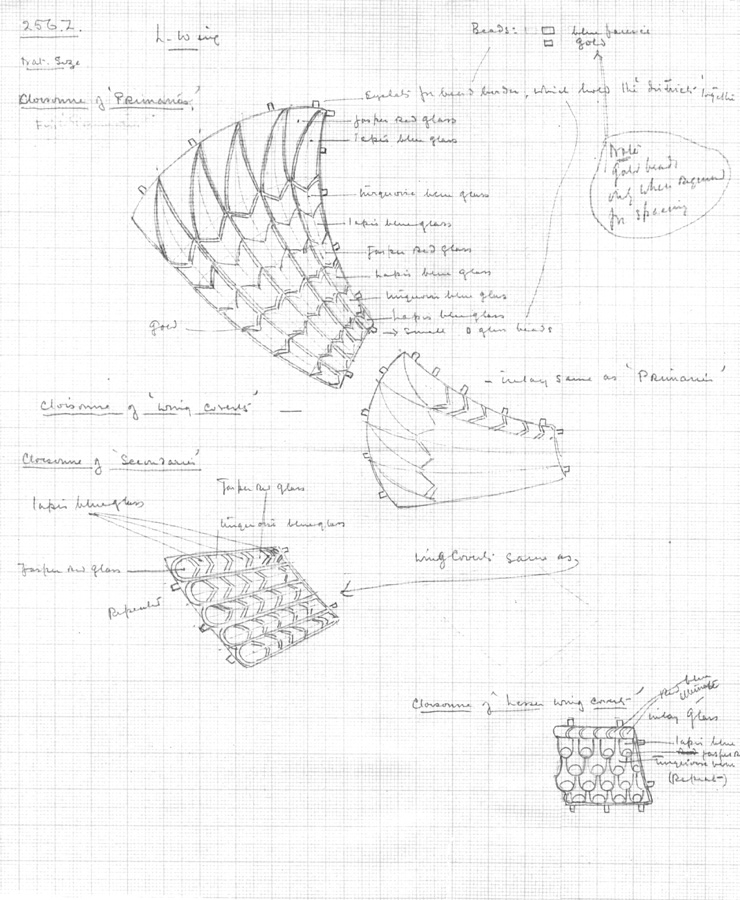 256.Z.
L-Wing
Beads: blue faience
gold
Nat. Size
Cloisonne of 'Primaries'
Eyelets for bead border, which hold the 'districts' together
Jasper Red glass
Lapis blue glass
Note
Gold beads
only when required
for spacing
turquoise blue glass
lapis blue glass
Jasper Red glass
Lapis blue glass
turquoise blue glass
Lapis blue glass
Small glass beads
gold
inlay same as 'Primaries'
Cloisonne of 'Wing Coverts' —
Cloisonne of 'Secondaries'
Jasper red glass
lapis blue glass
turquoise blue glass
Jasper red glass
Repeated
Wing Coverts same as
Cloisonne of 'Lesser Wing Coverts'
Red blue
alternate
inlay glass
lapis blue
jasper R
Turquoise blue
(Repeat)